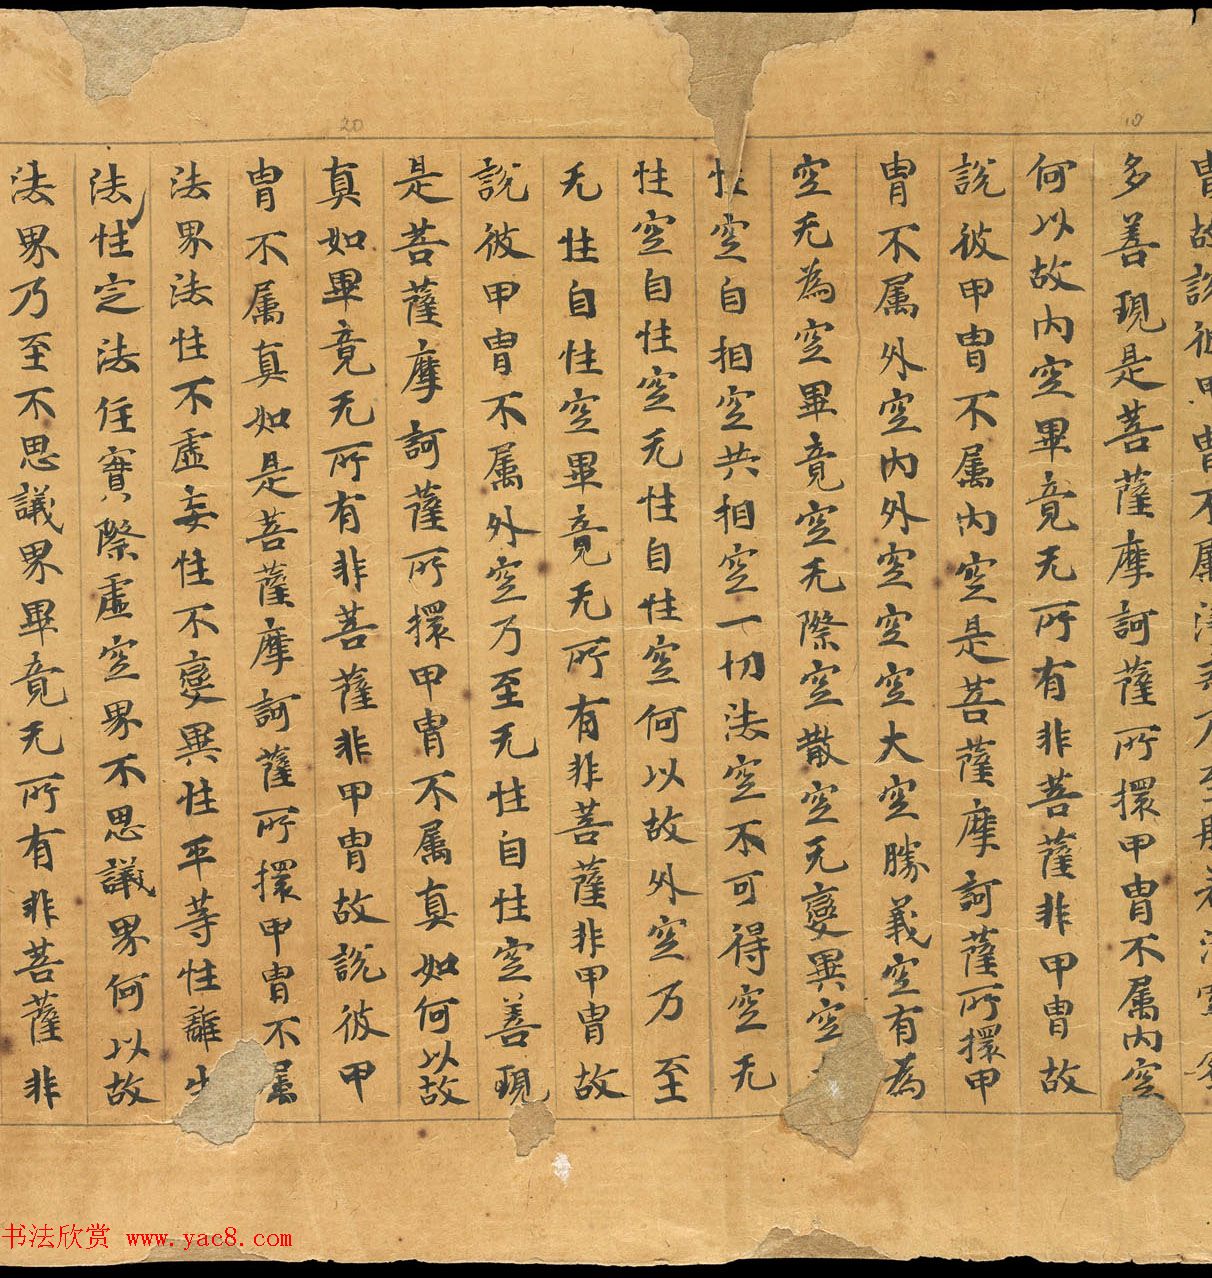 胄故說彼甲胄不属
多善現是菩薩摩訶薩所擐甲胄不属内空
何以故内空畢竟无所有非菩薩非甲胄故
說彼甲胄不属内空是菩薩摩訶薩所擐甲
胄不属外空内外空空空大空勝義空有為
空无為空畢竟空无際空散空无變異空
性空自相空共相空一切法空不可得空无
性空自性空无性自性空何以故外空乃至
无性自性空畢竟无所有非菩薩非甲胄故
說彼甲胄不属外空乃至无性自性空善現
是菩薩摩訶薩所擐甲胄不属真如何以故
真如畢竟无所有非菩薩非甲胄故說彼甲
胄不属真如是菩薩摩訶薩所擐甲胄不属
法界法性不虛妄性不變異性平等性離生
法性定法住實際虛空界不思議界何以故
法界乃至不思議界畢竟无所有非菩薩非
10
20
书法欣赏 www.yac8.com